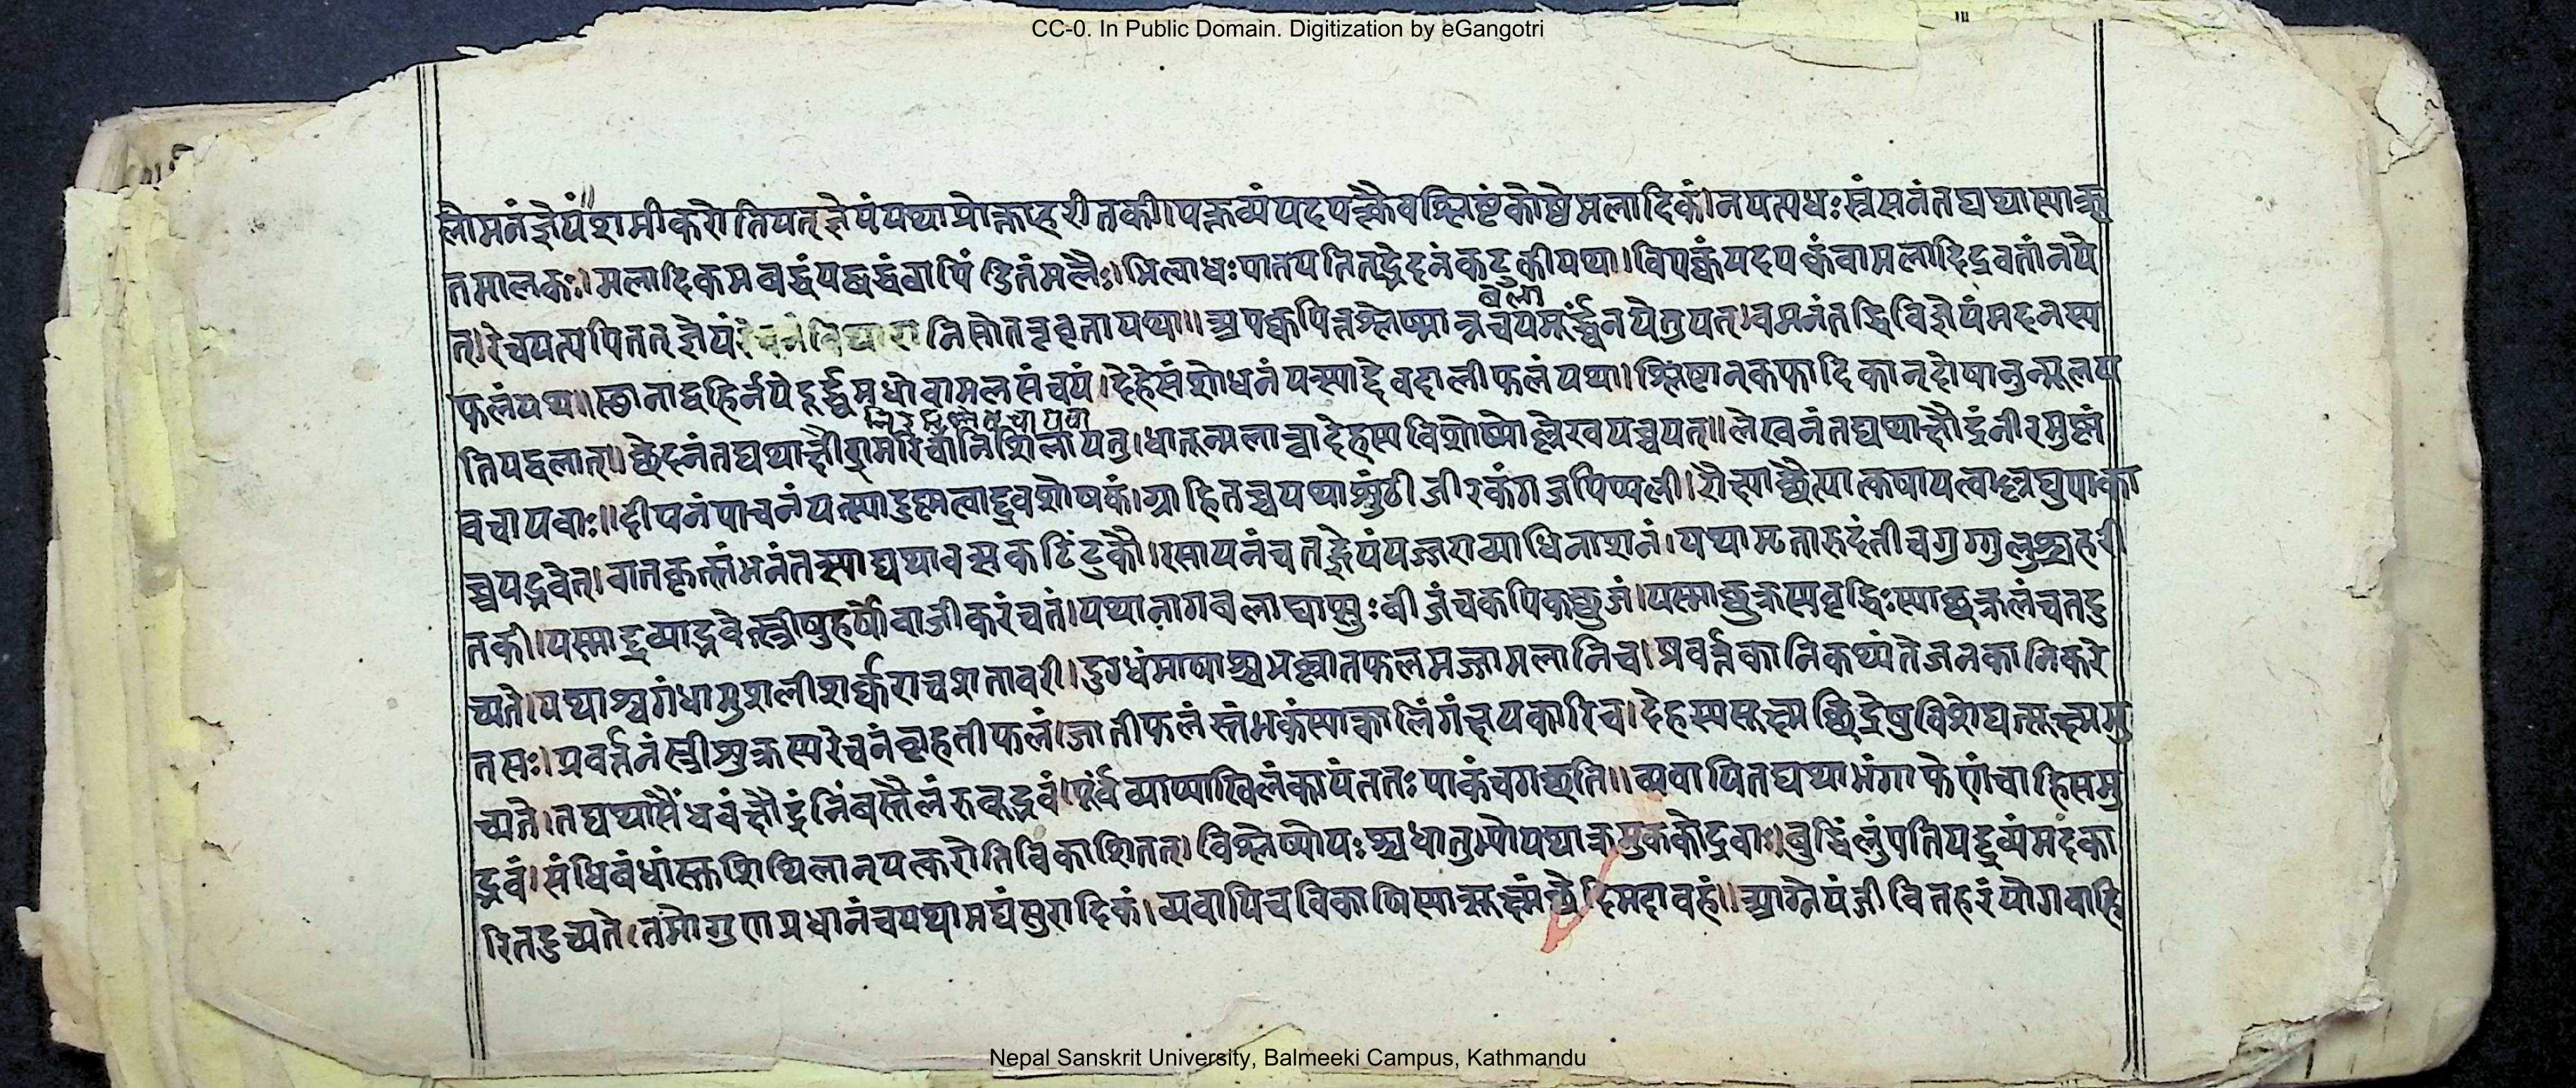 CC-0. In Public Domain. Digitization by eGangotri
लोमनंज्ञेयंशमीकरोतियत्ज्ञेयंयथाप्रोक्ताहरीतकी।पक्तव्यंयदपक्त्वैवश्लिष्टंकोष्ठेमलादिकं।नयत्यधःस्त्रंसनंतद्यथास्यात्कृ
तमालकः।मलादिकमबद्धंयद्बद्धंवापिंडितंमलैः।भित्वाधःपातयतितद्भेदनंकटुकीयथा।विपक्वंयदपक्वंवामलादिद्रवतांनये
त्।रेचयत्यपितत्ज्ञेयं त्रिवृतायथा॥अपक्वपित्तश्लेष्मान्नचयमूर्द्ध्वंनयेतुयत्।वमनंतद्धिविज्ञेयंमदनस्य
बला
फलंयथा॥स्थानाद्बहिर्नयेदूर्द्ध्वमधोवामलसंचयं।देहेसंशोधनंयत्स्याद्देवदालीफलंयथा।श्लिष्टान्कफादिकान्दोषानुन्मूलय
तियद्बलात्॥छेदनंतद्यथाक्षौद्रामरिचानिशिलायतु।धातून्मलान्वादेहस्यविशोष्योल्लेखयेच्चयत्॥लेखनंतद्यथाक्षौद्रंनीरमुष्णं
वचायवाः॥दीपनंपाचनंयत्स्यादुष्णत्वाद्द्रवशोषकं।ग्राहितच्चयथाशुंठीजीरकंगजपिप्पली।रौक्ष्याच्छैत्यात्कषायत्वाल्लघुपाका
च्चयद्भवेत्।वातकृत्स्तंभनंतत्स्याद्यथावत्सकटिंटुकौ।रसायनंचतद्ज्ञेयंयज्जराव्याधिनाशनं।यथामृतारुदंतीचगुग्गुलुश्चहरी
तकी।यस्माद्द्रव्याद्भवेत्स्त्रीषुहर्षोवाजीकरंचतं।यथानागबलाद्यास्सुःबीजंचकपिकछुजं।यस्माच्छुक्रस्यवृद्धिःस्याच्छुक्रलंचतदु
च्यते।यथाश्वगंधामुशलीशर्कराचशतावरी।दुग्धंमाषाश्चभल्लातफलमज्जामलानिच।प्रवर्त्तकानिकथ्यंतेजनकानिकरे
तसः।प्रवर्त्तनंस्त्रीशुक्रस्यरेचनंबृहतीफलं।जातीफलंस्तंभकंस्यात्कालिंगंक्षयकारिच।देहस्यसूक्ष्मछिद्रेषुविशेद्यत्सूक्ष्ममु
च्यते।तद्यथासैंधवंक्षौद्रंनिंबस्तैलंरुबूद्भवं।पूर्वंव्याप्याखिलंकायंततःपाकंचगच्छति॥व्यवायितद्यथाभंगाफेणंचाहिसमु
द्भवं।संधिबंधांस्तुशिथिलान्यत्करोतिविकाशितत्।विश्लेष्योयःश्चधातुभ्योयथाक्रमुककोद्रवाः।बुद्धिंलुंपतियद्द्रव्यंमदका
रितदुच्यते।तमोगुणप्रधानंचयथामद्यंसुरादिकं।व्यवायिचविकाषिस्यात्सूक्ष्मंछेदिमदावहं॥आग्नेयंजीवितहरंयोगवाहि
Nepal Sanskrit University, Balmeeki Campus, Kathmandu